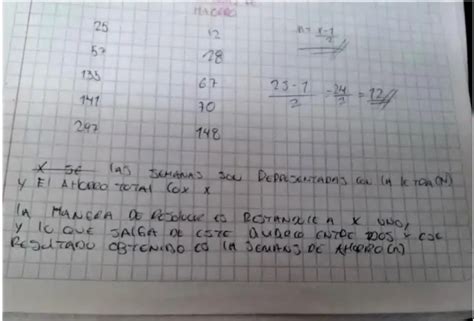 DE
AHORRO
25 12 n = x-1/2
57 28
135 67 25-1/2 = 24/2 = 12
141 70
297 148
LAS SEMANAS SON REPRESENTADAS CON LA LETRA (N)
Y EL AHORRO TOTAL CON X
LA MANERA DE RESOLVER ES RESTANDOLE A X UNO,
Y LO QUE SALGA DE ESTE DIVIDIRLO ENTRE DOS Y ESE
RESULTADO OBTENIDO ES LA SEMANA DE AHORRO (N)